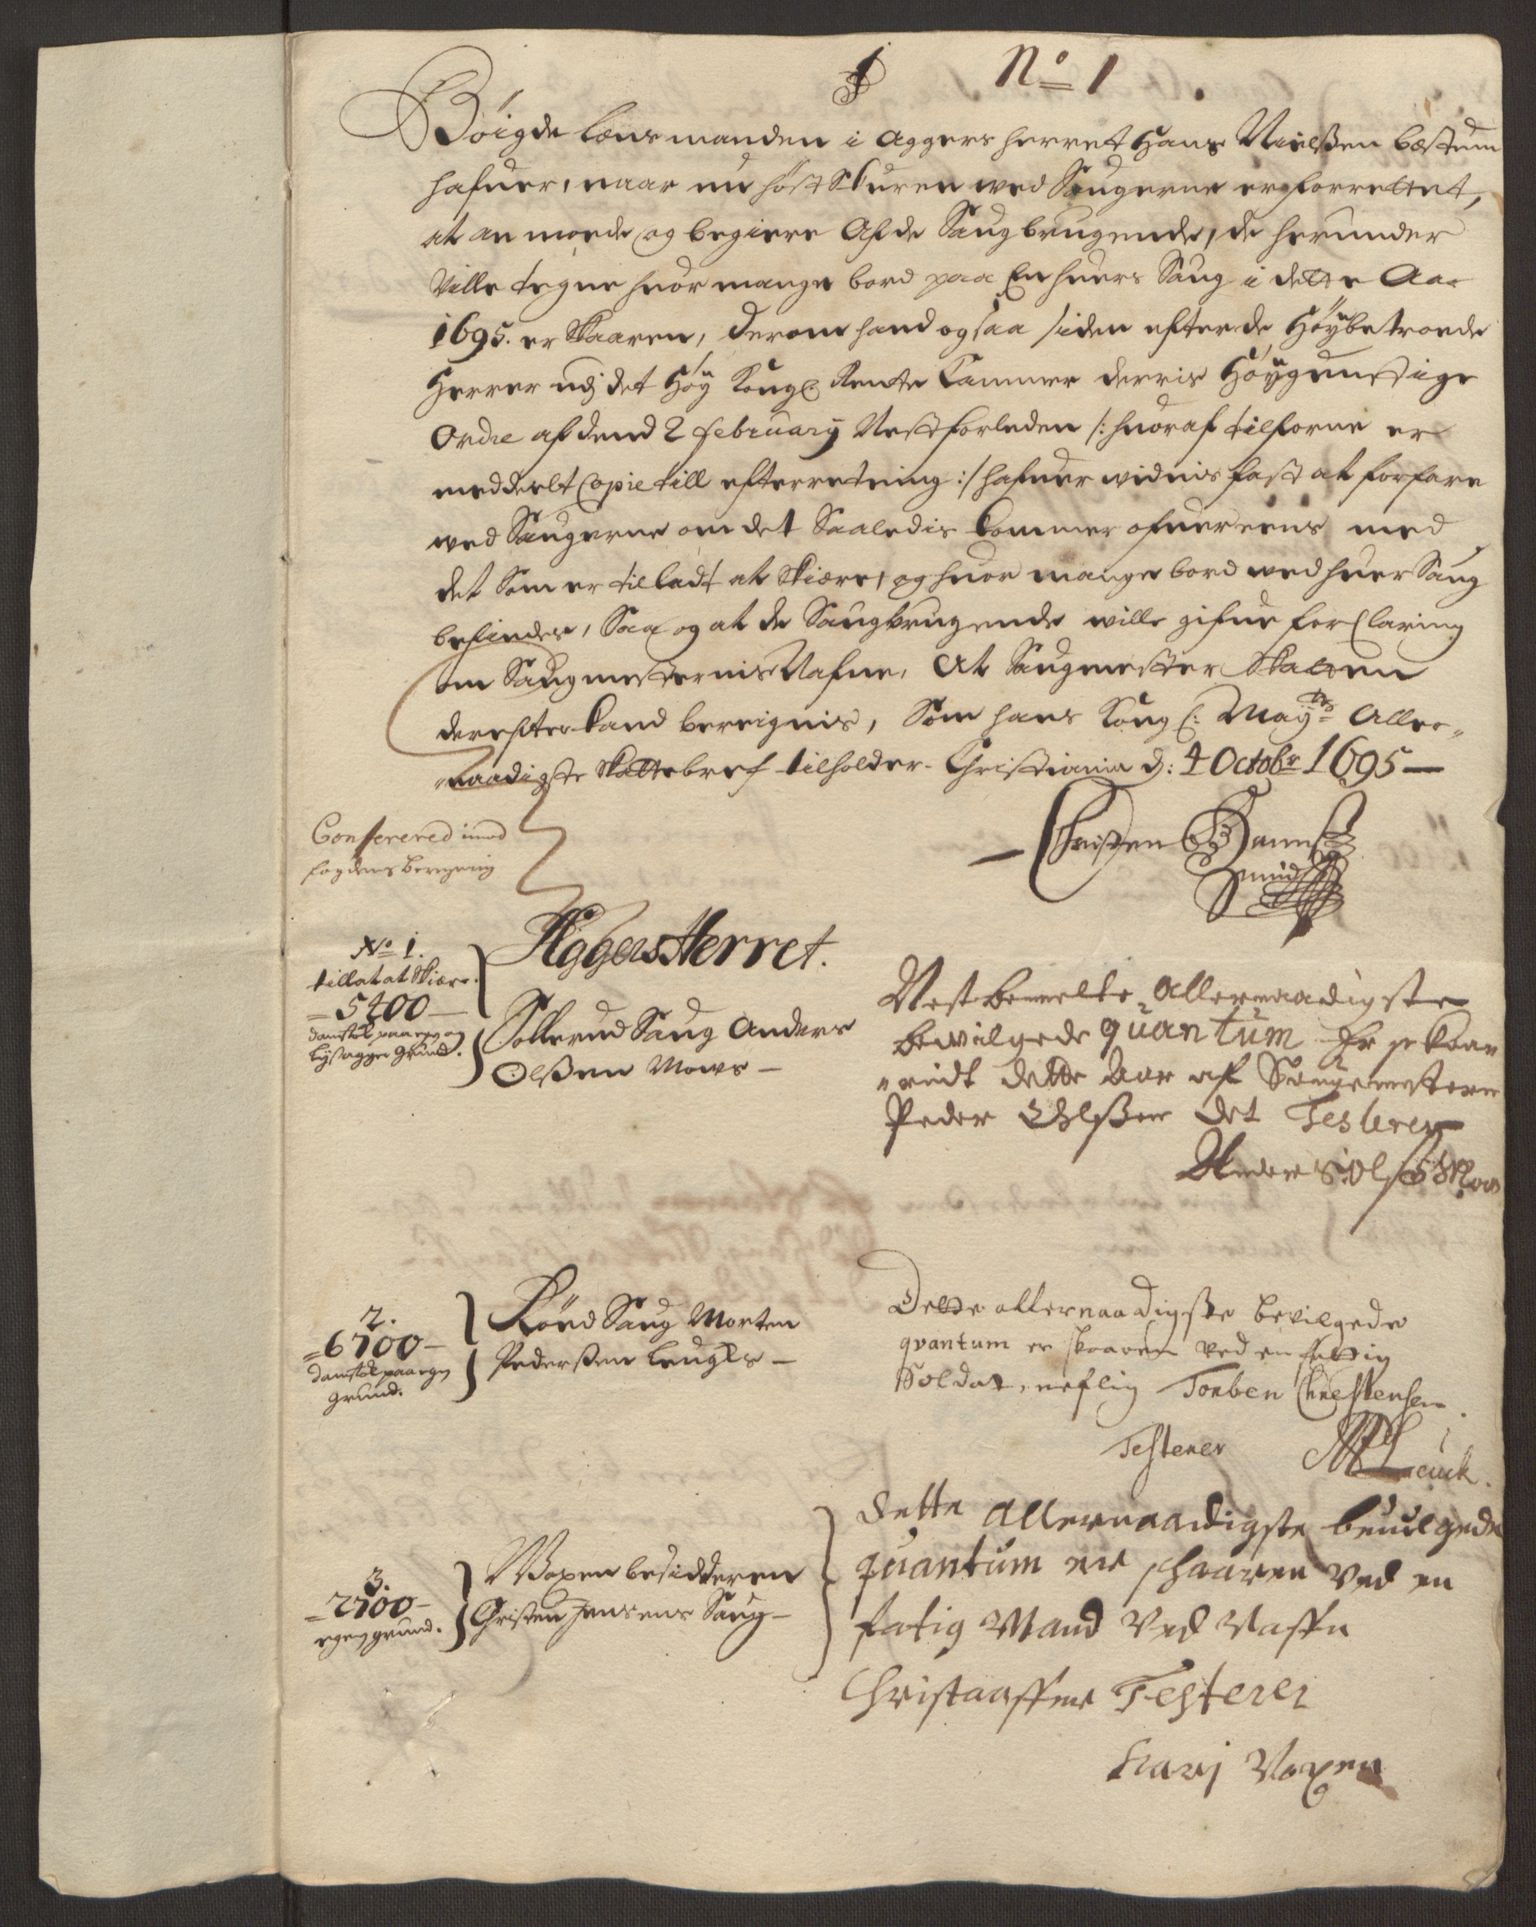 1 No 1
Böigde lensmanden i Aggers herret Hans Nielßen bestum
hafuer, naar nu höst Skuren wed Saugerne er forrettet,
at an mode og begiere Af de Saugbrugende, de herunder
Ville tegne huor mange bord paa En huers Saug i dette Aar
1695. er Skaaren, derom hand ogsaa siden efter de Höybetroede
Herrer udj det Höy Kongl. Rente Cammer derris Höygunstige
Ordre af dend 2 february Nestforleden /: huoraf tilforne er
meddeelt Copie till efterretning :/ hafuer widnis fast at forfare
wed Saugerne om det Saaledis kommer ofuereens med
det Som er tilladt at Skiære, og huor mange bord wed huer Saug
befindes, Saa og at de Saugbrugende wille gifue forClaring
om Saugmesternis Nafne, At Saugmester Skatten
derefter kand bereignis, Som hans Kongl: Mayts Aller-
naadigste Skattebref tilholder. Christiania d: 4 Octobr 1695 —
Christen
Confereret med
fogdens beregning
Aggers Herret.
No 1.
tillat at Skiære.
— 5400 —
Sollerud Saug Anders
Olßen Mows —
Nest bemelte Allernaadigste
bewilgede quantum Er skaar
dette Aar af Saugemesteren
Peder Olßen det Testerer
Anders Olßen Moos
2.
= 6700 —
damstok paa egen
grund.
Röed Saug Morten
Pederßen Leuchs —
Dette allernaadigste bevilgede
qvantum er skaaren ved en fattig
Soldat, neflig Torben Christensen
Testerer MPLeuck.
3.
= 2700 —
egen grund.
Woxen besidderen
Christen Jensens Saug —
Dette Allernaadigste beuilgede
quantum er skaaren Ved en
fatig Mand Ved Naffn
Christaaffer Testerer
Karj Voxen